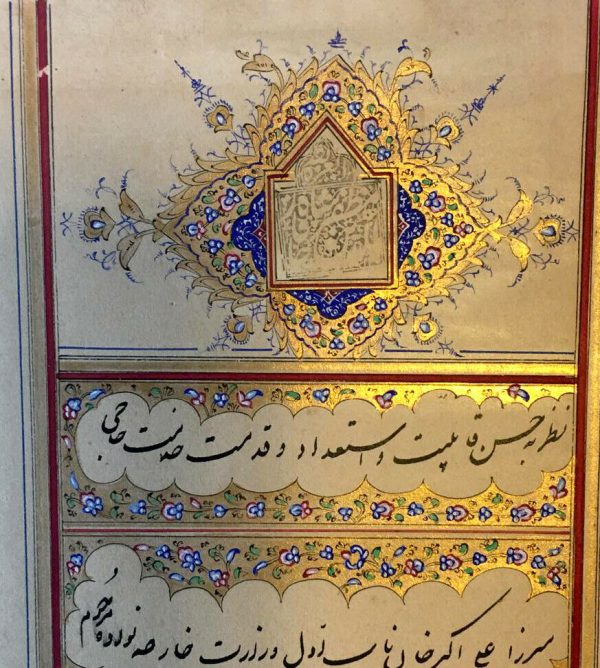 نظر به حسن قابلیت و استعداد و قدمت خدمت حاجی
میرزا علی اکبر خان نایب اول وزارت خارجه نواده مرحوم